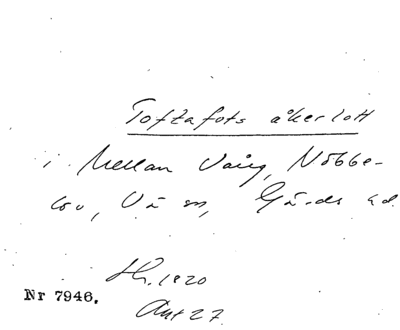 Toftafots åkerlott
i Mellan Vång, Nöbbe-
löv, Vä sn, Gärds hd.
Hr. 1820
Akt 27
Nr 7946.